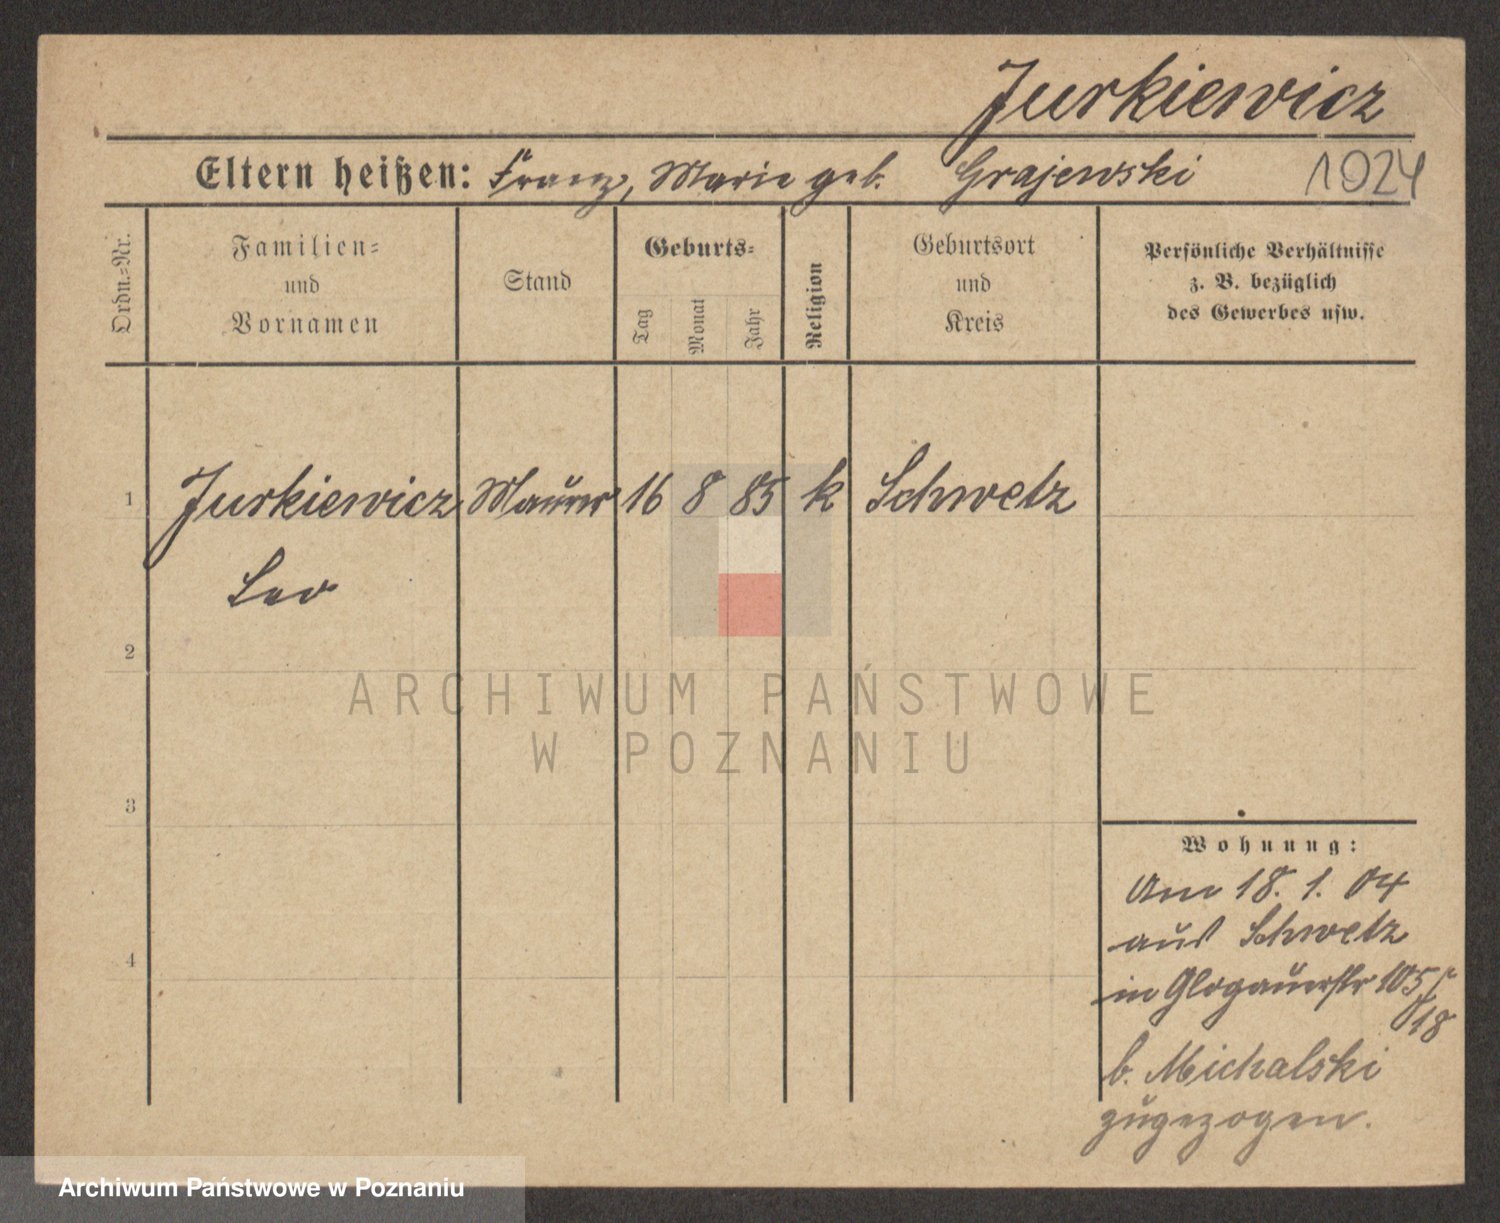 Jurkiewicz
Eltern heißen: Franz, Marie geb. Grajewski 1024
Ordn.=Nr.
Familien=
und
Vornamen
Stand
Geburts=
Tag
Monat
Jahr
Religion
Geburtsort
und
Kreis
Persönliche Verhältnisse
z. B. bezüglich
des Gewerbes usw.
1 Jurkiewicz Maurer 16 8 85 k Schwetz
Leo
2
ARCHIWUM PAŃSTWOWE
W POZNANIU
3
Wohnung:
Am 18. 1. 04
aus Schwetz
4
in Glogauerstr 105
18
b. Michalski
zugezogen.
Archiwum Państwowe w Poznaniu